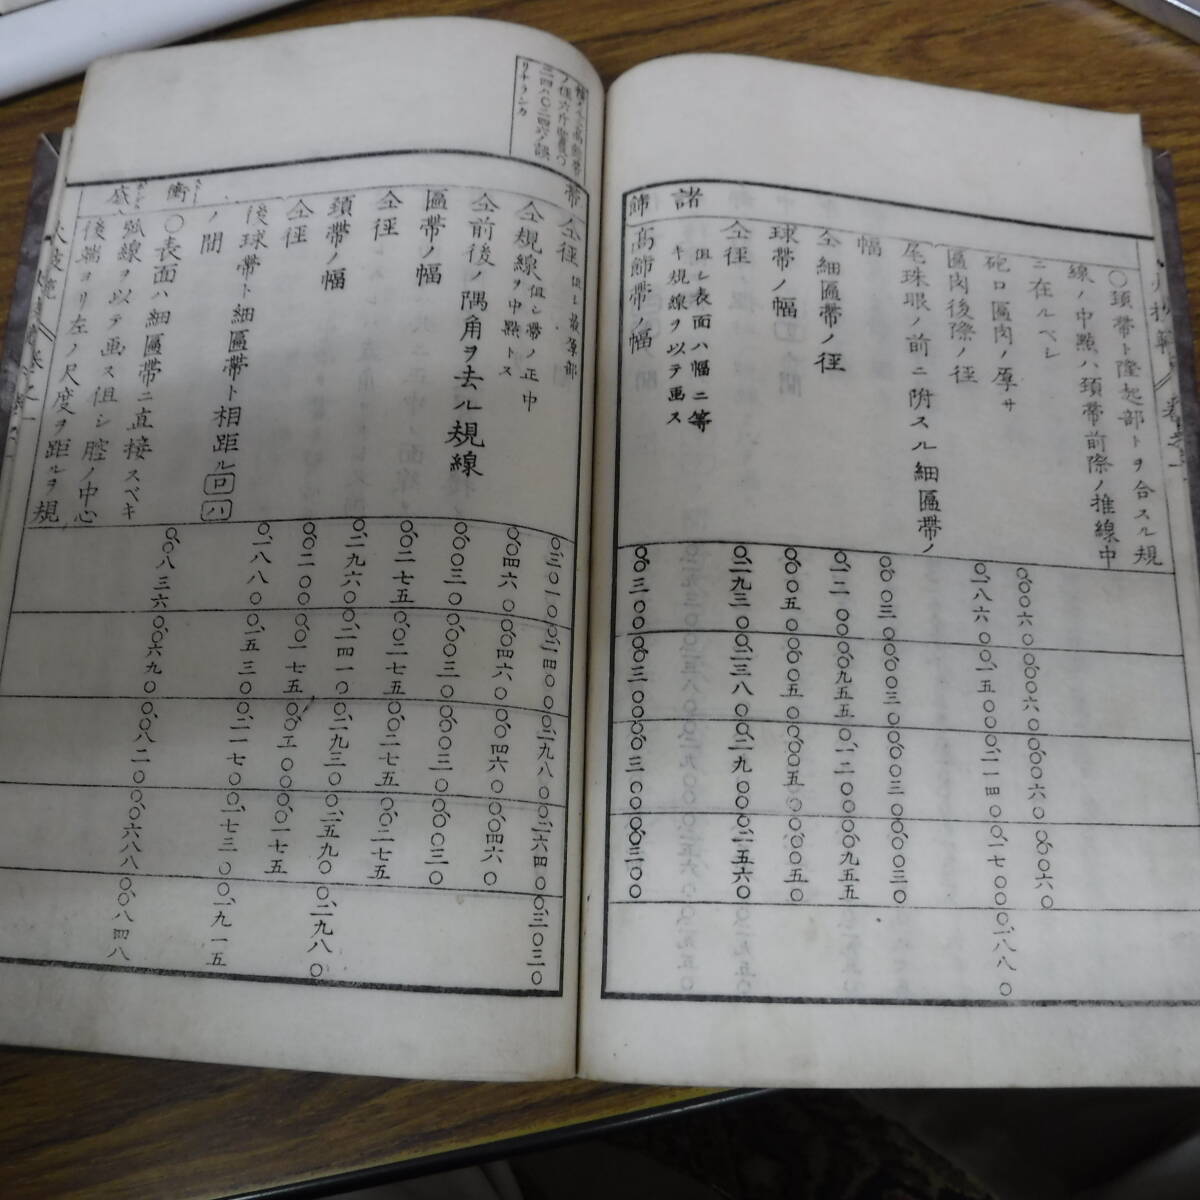 諸飾
〇頚帯ト隆起部トヲ合スル規
線ノ中點ハ頚帯前際ノ推線中
ニ在ルベシ
砲口匾肉ノ厚サ
〇、〇〇六〇 〇、〇〇六〇 〇、〇〇六〇 〇、〇〇六〇
匾肉後際ノ径
〇、一八六〇 〇、一五〇〇 〇、二一四〇 〇、一七〇〇 〇、一八八〇
尾珠眼ノ前ニ附スル細匾帯ノ
幅
〇、〇〇三〇 〇、〇〇三〇 〇、〇〇三〇 〇、〇〇三〇
仝細匾帯ノ径
〇、一二〇〇 〇、〇九五五 〇、一二〇〇 〇、〇九五五
球帯ノ幅
〇、〇〇五〇 〇、〇〇五〇 〇、〇〇五〇 〇、〇〇五〇
仝径
〇、二九三〇 〇、二三八〇 〇、二九〇〇 〇、二五六〇
但シ表面ハ幅ニ等
キ規線ヲ以テ画ス
高飾帯ノ幅
〇、〇三〇〇 〇、〇三〇〇 〇、〇三〇〇 〇、〇三〇〇
帯
仝径 但シ最厚部
〇、三〇一〇 〇、二四〇〇 〇、二九八〇 〇、二六四〇 〇、三〇三〇
仝規線 但シ帯ノ正中
ヲ中點トス
〇、〇四六〇 〇、〇四六〇 〇、〇四六〇 〇、〇四六〇
仝前後ノ隅角ヲ去ル規線
〇、〇〇三〇 〇、〇〇三〇 〇、〇〇三〇 〇、〇〇三〇
匾帯ノ幅
〇、〇二七五 〇、〇二七五 〇、〇二七五 〇、〇二七五
仝径
〇、二九六〇 〇、二四一〇 〇、二九三〇 〇、二五九〇 〇、二九八〇
頚帯ノ幅
〇、〇二〇〇 〇、〇一七五 〇、〇二〇〇 〇、〇一七五
仝径
〇、一八八〇 〇、一五三〇 〇、二一七〇 〇、一七三〇 〇、一九一五
後球帯ト細匾帯ト相距ル ロ ハ
ノ間
〇、〇八三六 〇、〇六九〇 〇、〇八二〇 〇、〇六八八 〇、〇八四八
衝
〇表面ハ細匾帯ニ直接スベキ
弧線ヲ以テ画ス但シ腔ノ中心
後端ヨリ左ノ尺度ヲ距ルヲ規